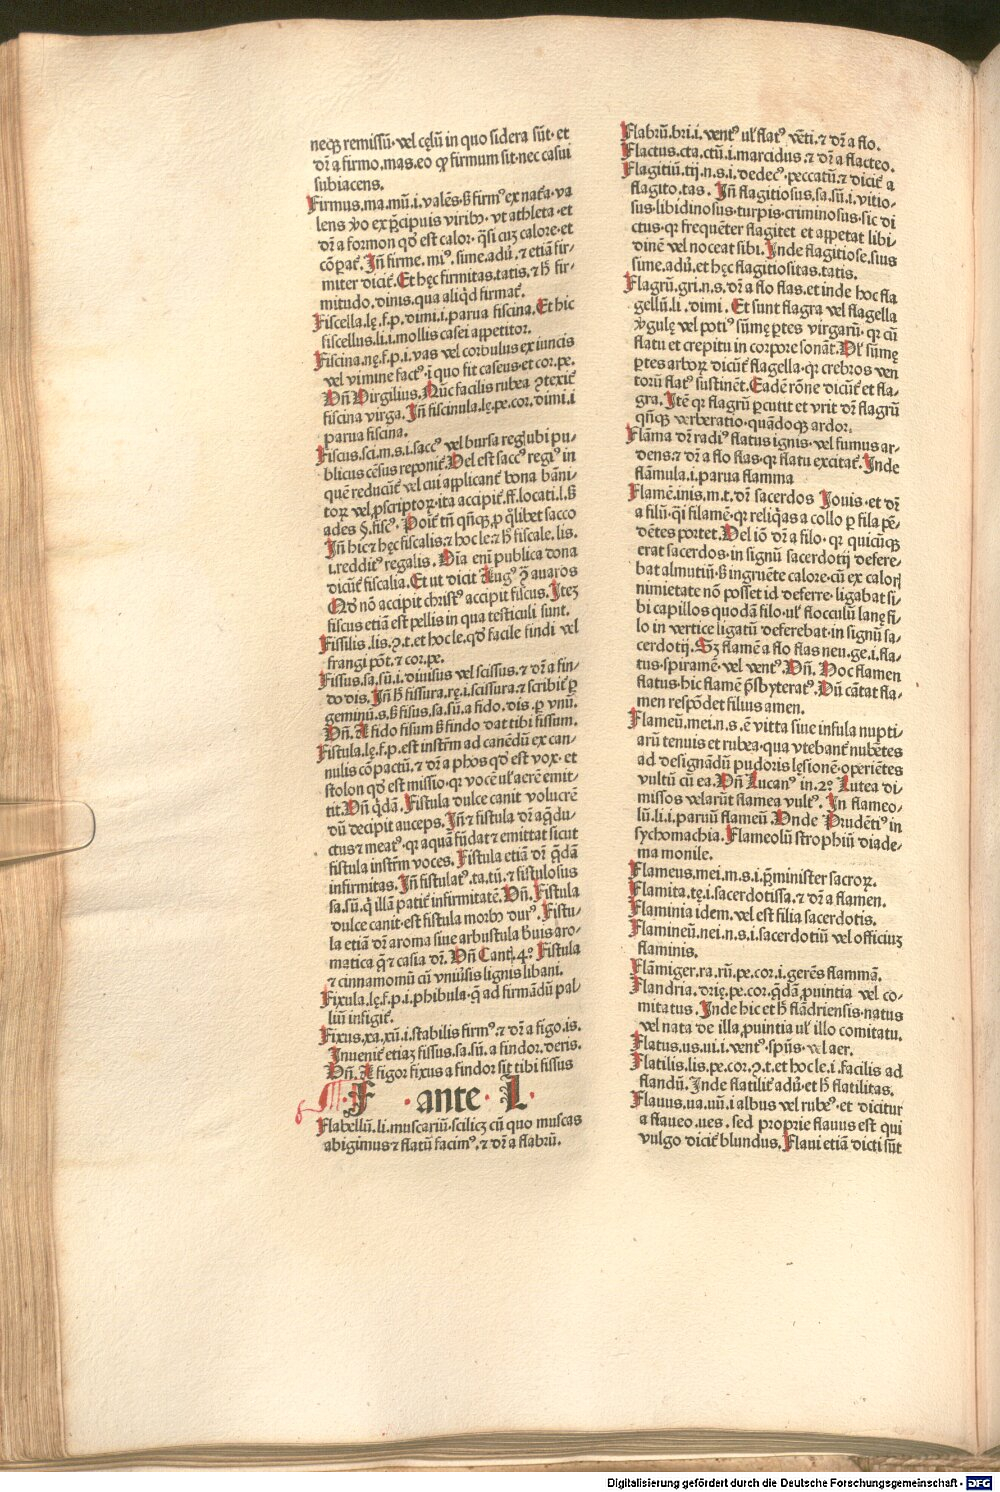 neqꝫ remissū· vel cęlū in quo sidera sūt· et
dr̄ a firmo.mas.eo ꝙ firmum sit·nec casui
subiacens.
Firmus.ma.mū.i.valēs·s̄ firmꝰ ex nat̄a·va
lens v̄o ex p̄cipuis viribꝰ· vt athleta·et
dr̄ a formon qd̄ est calor· q̄si cuꝫ calore·et
cōpat̄. Jn̄ firme.miꝰ.sime.adū.⁊ etiā fir-
miter dicit̄. Et hęc firmitas.tatis.⁊ h̄ fir-
mitudo.dinis.qua aliqd̄ firmat̄.
Fiscella.lę.f.p.dimi.i.parua fiscina. Et hic
fiscellus.li.i.mollis casei appetitor.
Fiscina.nę.f.p.i.vas vel corbulus ex iuncis
vel vimine factꝰ·ī quo fit caseus·et cor.pe.
Vn̄ Virgilius. Nūc facilis rubea ꝯtexit̄
fiscina virga. Jn̄ fiscinula.lę.pe.cor.dimi.i
parua fiscina.
Fiscus.sci.m.s.i.saccꝰ vel bursa reg̣ ubi pu-
blicus cēsus reponit̄. Vel est saccꝰ regiꝰ in
quē reducūt̄ vel cui applicant̄ bona bāni-
toꝝ vel ꝓscriptoꝝ·ita accipit̄.ff.locati.l.s̄
ades §.fiscꝰ. Poit̄ tn̄ qn̄qꝫ ꝓ qͥlibet sacco
Jn̄ hic ⁊ hęc fiscalis·⁊ hoc le·⁊ h̄ fiscale.lis.
i.redditꝰ regalis. Via eni publica bona
dicūt̄ fiscalia. Et ut dicit Augꝰ ꝯ̄ auaros
Qd̄ nō accipit christꝰ accipit fiscus. Jteꝫ
fiscus etiā est pellis in qua testiculi sunt.
Fissilis.lis.ꝯ.t.et hoc le.qd̄ facile findi vel
frangi pōt.⁊ cor.pe.
Fissus.sa.sū.i.diuisus vel scissus.⁊ dr̄ a fin-
do dis. Jn̄ h̄ fissura.rę.i.scissura.⁊ scribit̄ ꝑ
geminū.s.s̄ fisus.sa.sū.a fido.dis.ꝑ vnū.
Vn̄. A fido fisum s̄ findo dat tibi fissum.
Fistula.lę.f.p.est instr̄m ad canēdū ex can-
nulis cōpactū.⁊ dr̄ a phos qd̄ est vox· et
stolon qd̄ est missio· qꝛ vocē ul̓ aerē emit-
tit. Vn̄ q̄dā. Fistula dulce canit volucrē
dū decipit auceps. Jn̄ ⁊ fistula dr̄ aq̄du-
ctus ⁊ meatꝰ.qꝛ aquā fūdat ⁊ emittat sicut
fistula instr̄m voces. Fistula etiā dr̄ q̄dā
infirmitas. Jn̄ fistulatꝰ.ta.tū.⁊ fistulosus
sa.sū.q̇ illā patit̄ infirmitatē. Vn̄. Fistula
dulce canit·est fistula morbꝰ durꝰ. Fistu-
la etiā dr̄ aroma siue arbustula s̄uis aro-
matica q̄ ⁊ casia dr̄. Vn̄ Canti.4.º Fistula
⁊ cinnamomū cū vniūsis lignis libani.
Fixula.lę.f.p.i.phibula·q̄ ad firmādū pal
liū infigit̄.
Fixus.xa.xū.i.stabilis firmꝰ.⁊ dr̄ a figo.is.
Jnuenit̄ etiaꝫ fissus.sa.sū.a findor.deris.
Vn̄. A figor fixus a findor sit tibi fissus
F ante L
Flabellū.li.muscariū·scilicꝫ cū quo muscas
abigimus ⁊ flatū facimꝰ.⁊ dr̄ a flabrū.
Flabrū.bri.i.ventꝰ ul̓ flatꝰ vēti.⁊ dr̄ a flo.
Flactus.cta.ctū.i.marcidus.⁊ dr̄ a flacteo.
Flagitiū.tij.n.s.i.dedecꝰ·peccatū.⁊ dicit̄ a
flagito.tas. Jn̄ flagitiosus.sa.sū.i.vitio-
sus·libidinosus·turpis·criminosus·sic di
ctus·qꝛ frequēter flagitet et appetat libi-
dinē vel noceat sibi. Jnde flagitiose.sius
sime.adū.et hęc flagitiositas.tatis.
Flagrū.gri.n.s.dr̄ a flo flas.et inde hoc fla
gellū.li.dimi. Et sunt flagra vel flagella
v̄gulę vel potiꝰ sūmę ptes virgarū· qꝛ cū
flatu et crepitu in corpore sonāt. Vl̓ sūmę
ptes arboꝝ dicūt̄ flagella·qꝛ crebros ven
torū flatꝰ sustinēt. Eadē rōne dicūt̄ et fla-
gra. Jtē qꝛ flagrū ꝑcutit et vrit dr̄ flagrū
qn̄qꝫ verberatio·quādoqꝫ ardor.
Flāma dr̄ radiꝰ flatus ignis· vel fumus ar-
dens.⁊ dr̄ a flo flas·qꝛ flatu excitat̄. Jnde
flāmula.i.parua flamma
Flamē.inis.m.t.dr̄ sacerdos Jouis·et dr̄
a filū·q̄i filamē·qꝛ reliq̄as a collo ꝑ fila pē-
dētes portet. Vel iō dr̄ a filo·qꝛ quicūqꝫ
erat sacerdos·in signū sacerdotij defere-
bat almutiū·s̄ ingruēte calore·cū ex calor̄
nimietate nō posset id deferre·ligabat si-
bi capillos quodā filo·ul̓ flocculū lanę fi-
lo in vertice ligatū deferebat·in signū sa-
cerdotij. Sꝫ flamē a flo flas neu.ge.i.fla-
tus·spiramē· vel ventꝰ. Vn̄. Hoc flamen
flatus·hic flamē p̄sbyteratꝰ. Dū cātat fla-
men respōdet filius amen.
Flameū.mei.n.s.ē vitta siue infula nupti-
arū tenuis et rubea·qua vtebant̄ nubētes
ad designādū pudoris lęsionē·operiētes
vultū cū ea. Vn̄ Lucanꝰ in.2.º Lutea di-
missos velarūt flamea vultꝰ. Jn flameo-
lū.li.i.paruū flameū. Vnde Prudētiꝰ in
sychomachia. Flameolū strophiū diade-
ma monile.
Flameus.mei.m.s.i.p̄minister sacroꝝ.
Flamita.tę.i.sacerdotissa.⁊ dr̄ a flamen.
Flaminia idem.vel est filia sacerdotis.
Flamineū.nei.n.s.i.sacerdotiū vel officiuꝫ
flaminis.
Flāmiger.ra.rū.pe.cor.i.gerēs flammā.
Flandria.drię.pe.cor.q̄dā ꝓuintia vel co-
mitatus. Jnde hic et h̄ flādriensis·natus
vel nata de illa ꝓuintia ul̓ illo comitatu.
Flatus.us.ui.i.ventꝰ·spūs· vel aer.
Flatilis.lis.pe.cor.ꝯ.t.et hoc le.i.facilis ad
flandū. Jnde flatilit̄ adū·et h̄ flatilitas.
Flauus.ua.uū.i albus vel rubeꝰ·et dicitur
a flaueo.ues. sed proprie flauus est qui
vulgo dicit̄ blundus. Flaui etiā dicti sūt
Digitalisierung gefördert durch die Deutsche Forschungsgemeinschaft - DFG